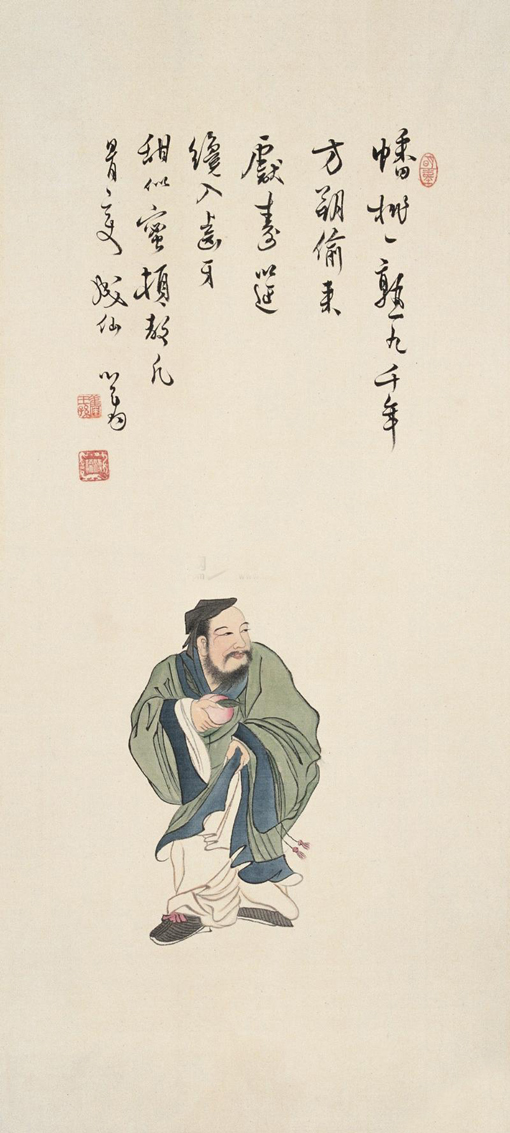 幡桃一熟九千年
方朔偷來
獻壽筵
纔入齒牙
甜似蜜頓教凡
骨變成仙 心畬